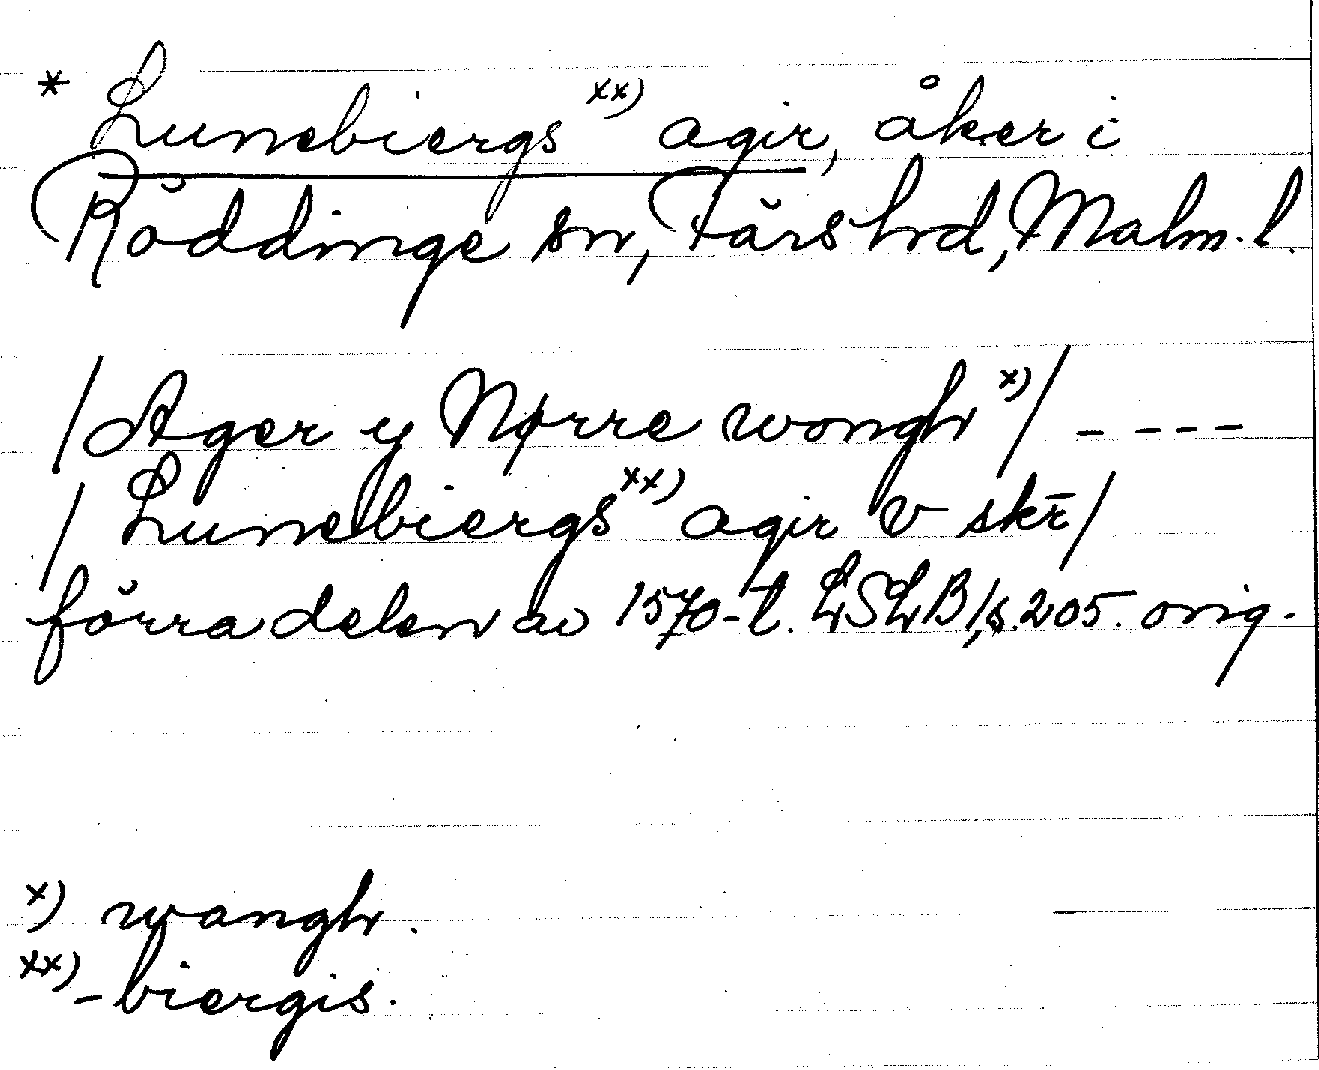 * Lunebiergs xx) agir, åker i
Röddinge sn, Färs hrd, Malm. l.
/Ager y Nørre wongh x)/ - - - -
/ Lunebiergs xx) agir v skr̄/
förra delen av 1570-t. LSLB 1, s. 205. orig.
x) wangh.
xx) -biergis.